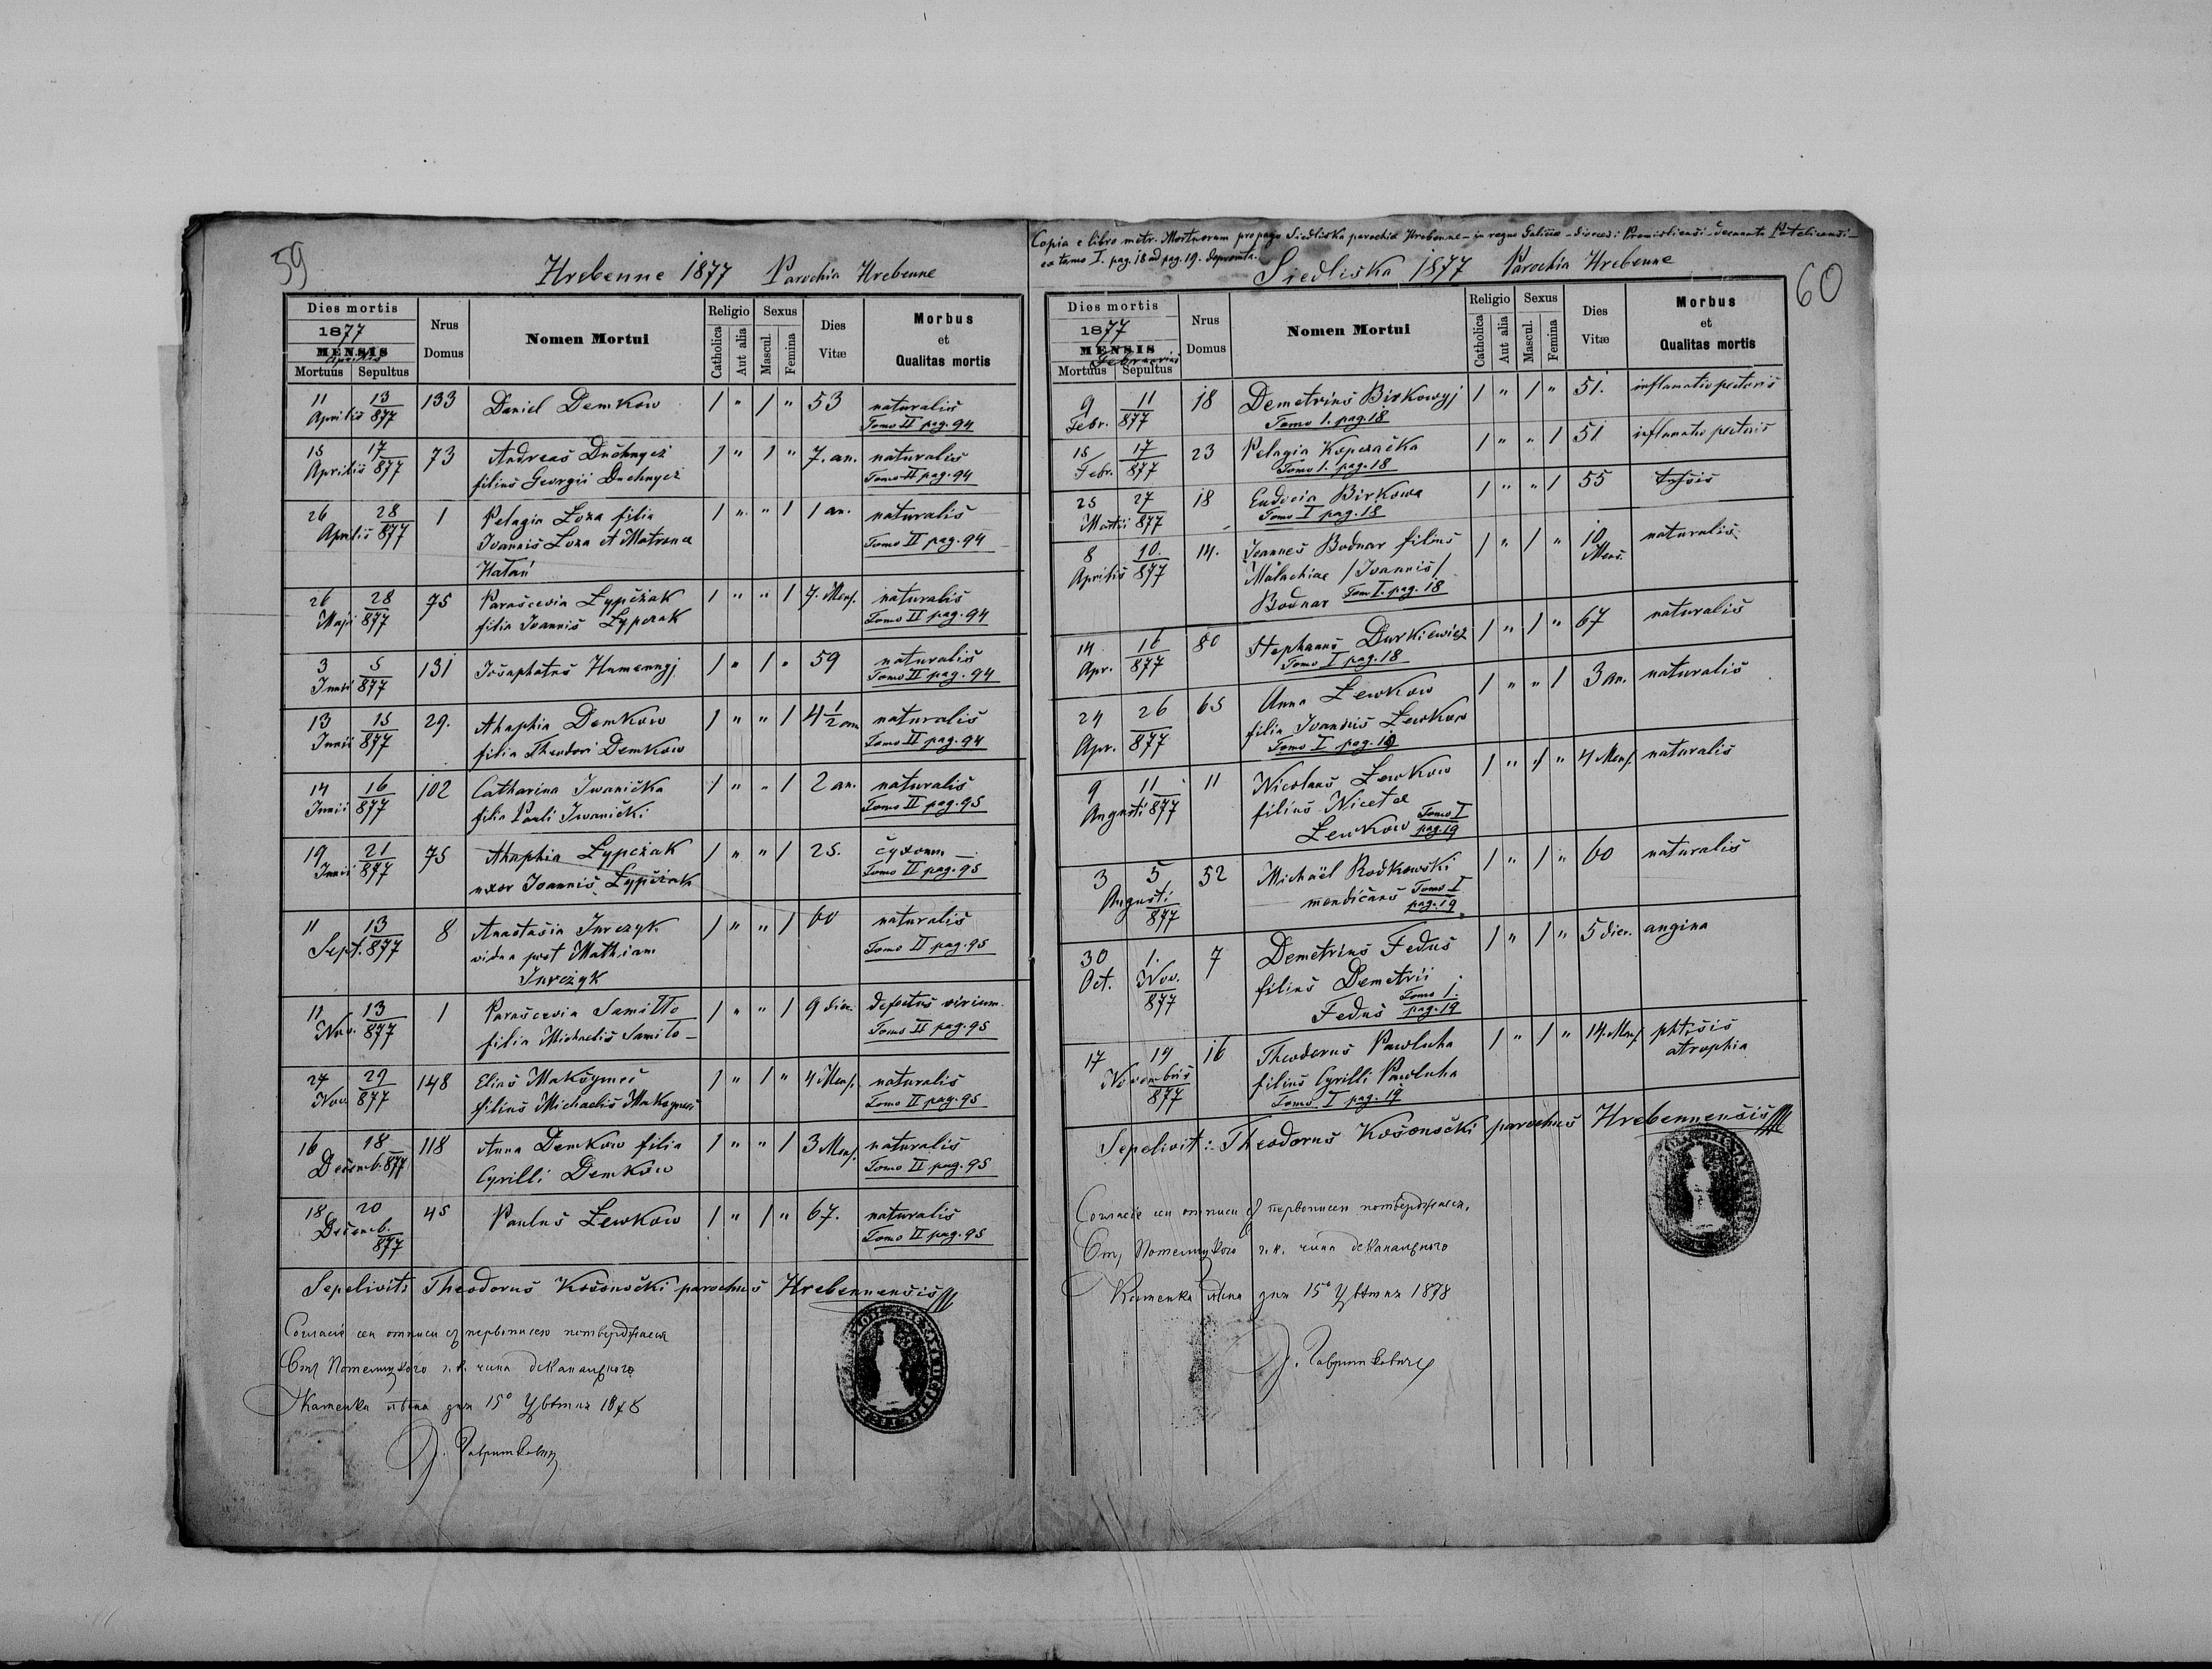 59
Hrebenne 1877 Parochia Hrebenne
Dies mortis
1877
MENSIS
Aprilis
Mortuus Sepultus
Nrus Domus
Nomen Mortui
Religio
Catholica
Aut alia
Sexus
Mascul.
Femina
Dies Vitæ
Morbus
et
Qualitas mortis
11 13 133 Daniel Demkow 1 " 1 " 53 naturalis
Aprilis 877 Tomo II pag. 94
15 17 73 Andreas Duchnycz 1 " 1 " 7. an. naturalis
Aprilis 877 filius Georgii Duchnycz Tomo II pag. 94
26 28 1 Pelagia Loza filia 1 " " 1 1 an. naturalis
Aprilis 877 Ioannis Loza et Matrona Tomo II pag. 94
Hatań
26 28 75 Parascevia Lypczak 1 " " 1 7. Mens. naturalis
Maji 877 filia Ioannis Lypczak Tomo II pag. 94
3 5 131 Josaphatus Humennyj 1 " 1 " 59 naturalis
Junii 877 Tomo II pag. 94
13 15 29. Ahaphia Demkow 1 " " 1 4 1/2 an naturalis
Junii 877 filia Theodori Demkow Tomo II pag. 94
14 16 102 Catharina Iwanicka 1 " " 1 2 an. naturalis
Junii 877 filia Pauli Iwanicki Tomo II pag. 95
19 21 75 Ahaphia Lypczak 1 " " 1 25.
Junii 877 uxor Ioannis Lypczak Tomo II pag. 95
11 13 8 Anastasia Jurczyk 1 " " 1 60 naturalis
Sept. 877 vidua post Mathiam Tomo II pag. 95
Jurczyk
11 13 1 Parascevia Samiłło 1 " " 1 9 dier. defectus virium
Nov. 877 filia Michaelis Samiło Tomo II pag. 95
27 29 148 Elias Maksymec 1 " 1 " 4 Mens. naturalis
Nov. 877 filius Michaelis Tomo II pag. 95
16 18 118 Anna Demkow filia 1 " " 1 3 Mens. naturalis
Decemb. 877 Cyrilli Demkow Tomo II pag. 95
18 20 45 Paulus Lewkow 1 " 1 " 67. naturalis
Decemb. 877 Tomo II pag. 95
Sepelivit: Theodorus Kossonocki parochus Hrebennensis
Согласіе сеи отписи съ первописею потверджаеся
Отъ Потелицкого г. к. чина деканального
Каменка дня 15º Цвѣтня 1878
Copia e libro metr. Mortuorum pro pago Siedliska parochia Hrebenne - in regno Galiciæ - dioecesi Premisliensi - Decanatu Potelicensi -
ex tomo I. pag. 18 ad pag. 19. deprompta.
60
Siedliska 1877 Parochia Hrebenne
Dies mortis
1877
MENSIS
Februarius
Mortuus Sepultus
Nrus Domus
Nomen Mortui
Religio
Catholica
Aut alia
Sexus
Mascul.
Femina
Dies Vitæ
Morbus
et
Qualitas mortis
9 11 18 Demetrius Birkowyj 1 " 1 " 51. inflamatio pectoris
Febr. 877 Tomo I. pag. 18
15 17 23 Pelagia Koperacka 1 " " 1 51 inflamatio pectoris
Febr. 877 Tomo I. pag. 18
25 27 18 Eudocia Birkowa 1 " " 1 55
Martii 877 Tomo I pag. 18
8 10. 14. Joannes Bodnar filius 1 " 1 " 10 Mens. naturalis
Aprilis 877 Malachiae /Ioannis/
Bodnar Tom I. pag. 18
14 16 80 Stephanus Durkiewicz 1 " 1 " 67 naturalis
Apr. 877 Tomo I pag. 18
24 26 65 Anna Lewkow 1 " " 1 3 an. naturalis
Apr. 877 filia Ioannis Lewkow
Tomo I pag. 19
9 11 11 Nicolaus Lewkow 1 " 1 " 4 Mens. naturalis
Augusti 877 filius Nicetæ
Lewkow Tomo I pag. 19
3 5 52 Michaël Rodkowski 1 " 1 " 60 naturalis
Augusti 877 mendicans Tomo I pag. 19
30 1. 7 Demetrius Fedus 1 " 1 " 5 dier. angina
Oct. Nov. 877 filius Demetrii
Fedus Tomo I. pag. 19
17 19 16 Theodorus Pawluha 1 " 1 " 14. Mens. phtisis
Novembris 877 filius Cyrilli Pawluha atrophia
Tomo I pag. 19
Sepelivit: Theodorus Kossonocki parochus Hrebennensis
Согласіе сеи отписи съ первописею потверджаеся.
Отъ Потелицкого г. к. чина деканального
Каменка дня 15º Цвѣтня 1878